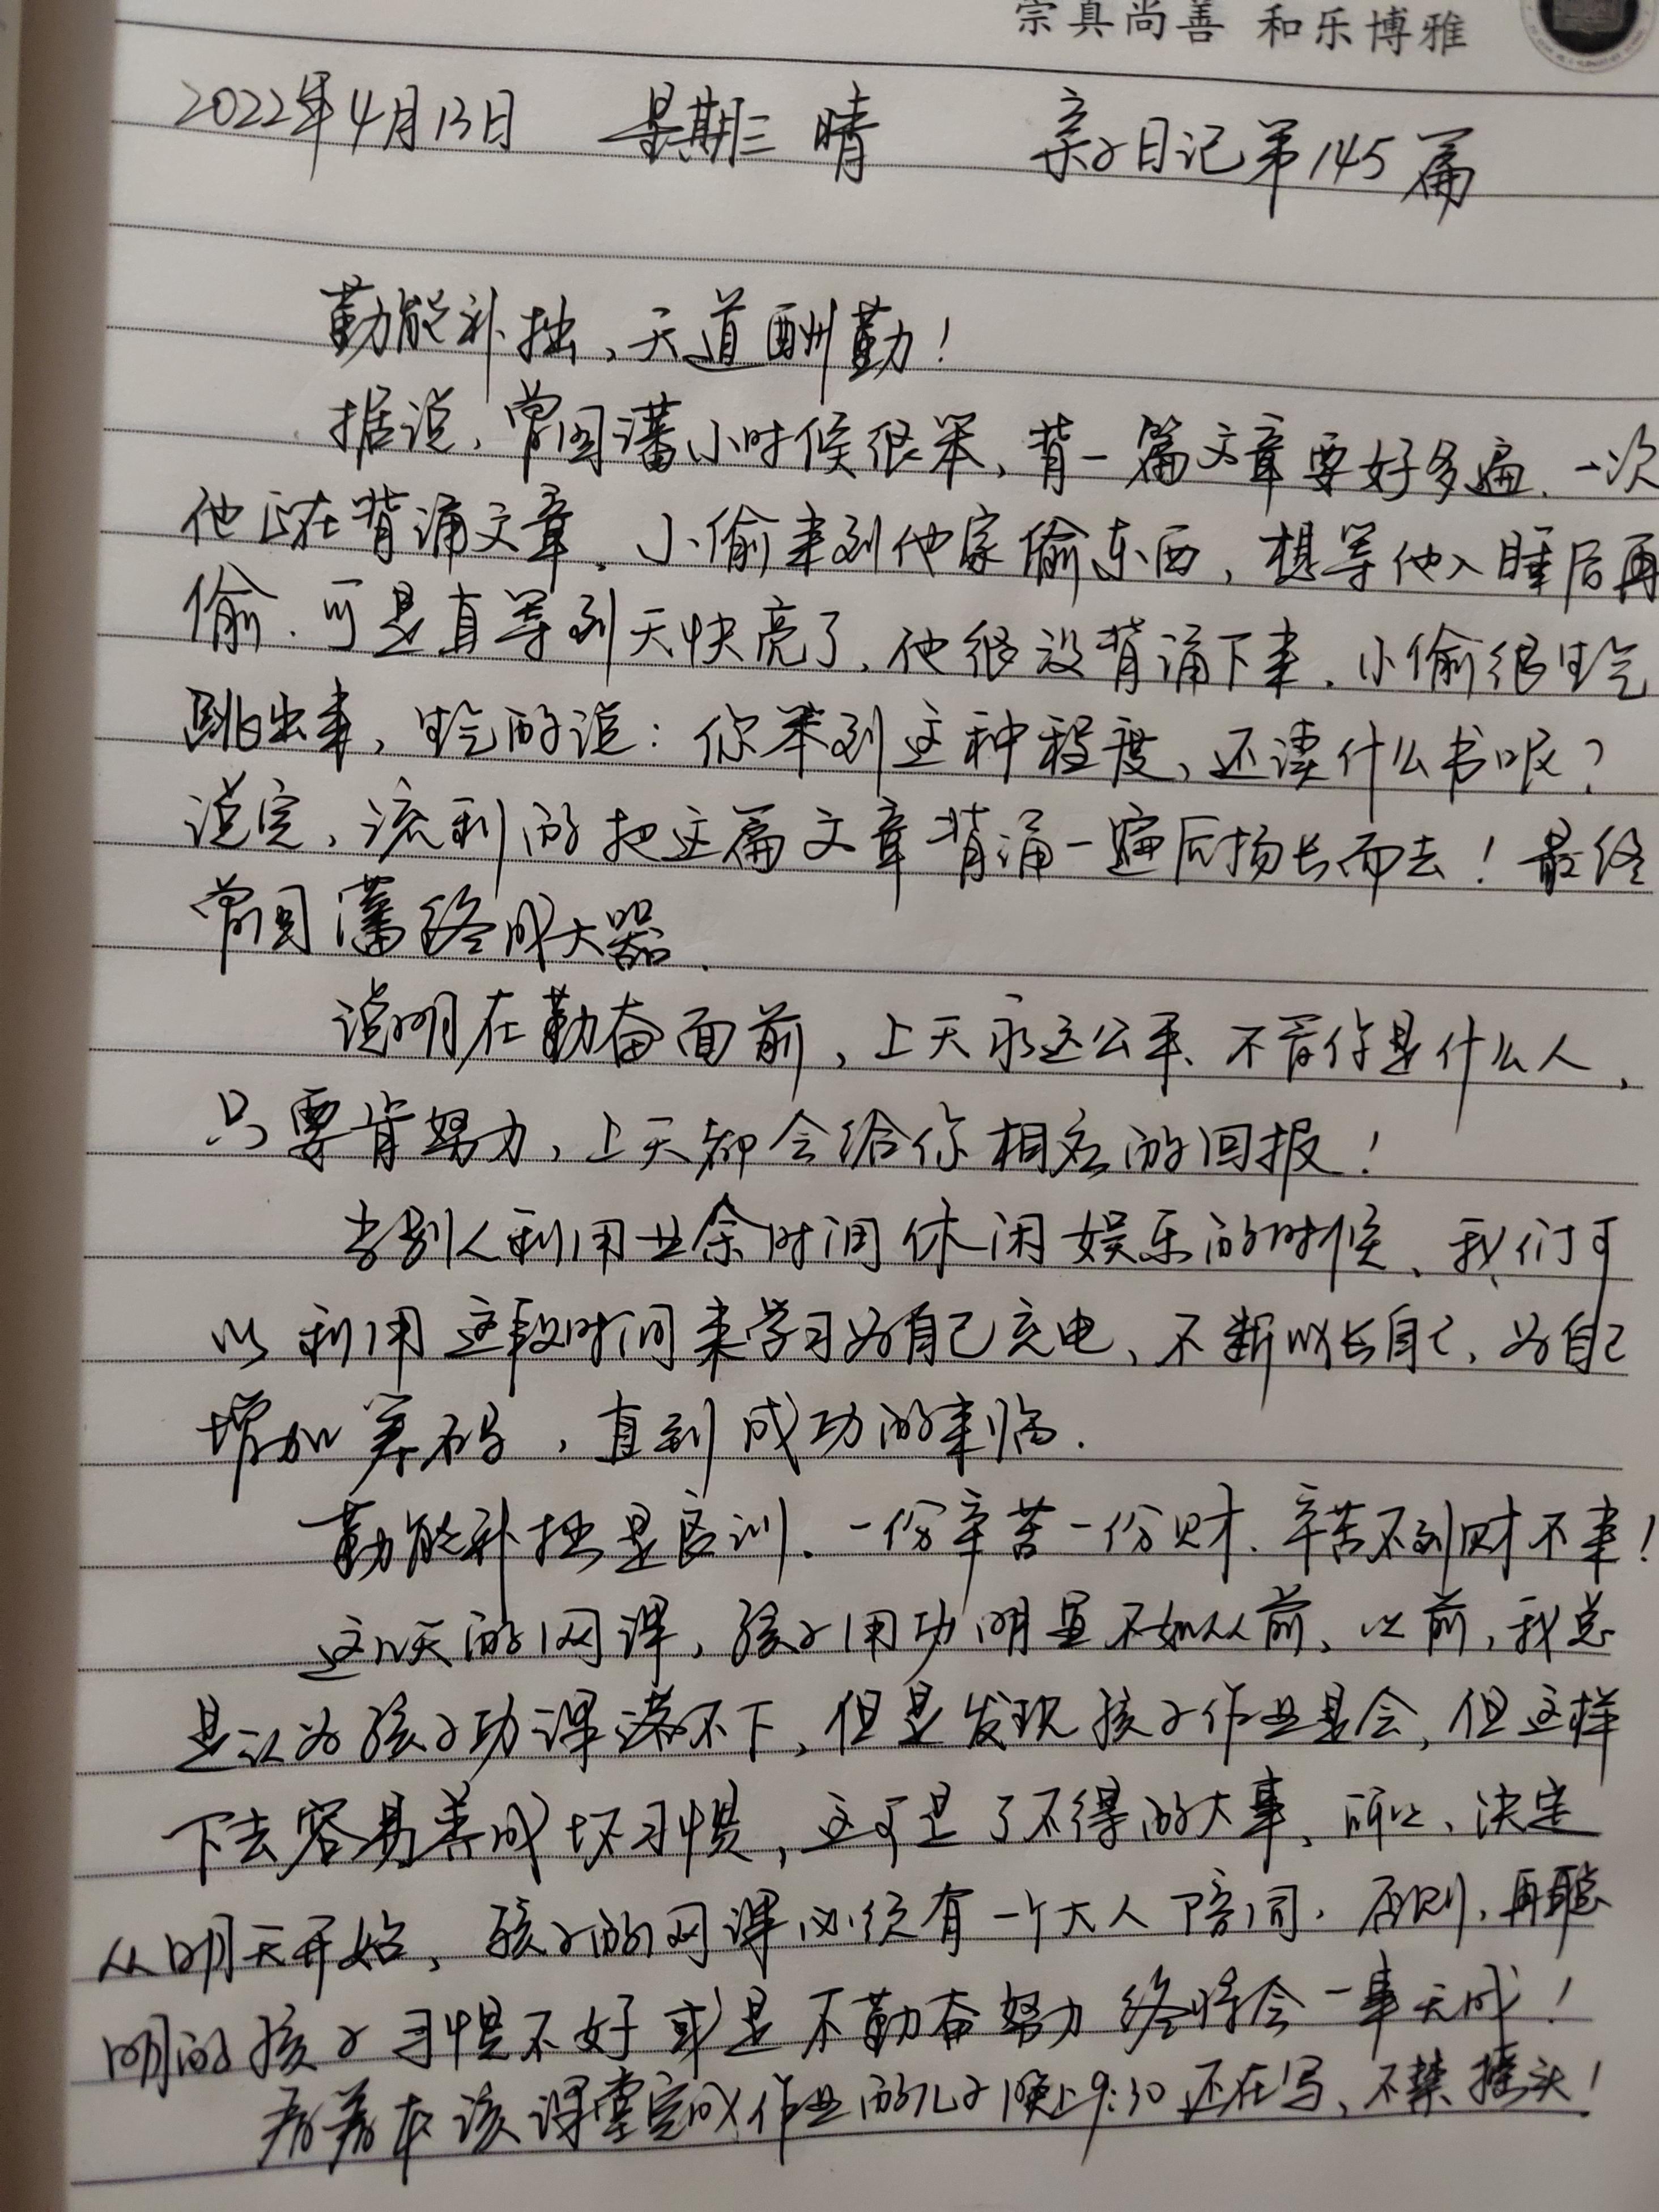 宗真尚善 和乐博雅
2022年4月13日 星期三 晴 亲子日记第145篇
勤能补拙，天道酬勤！
据说，曾国藩小时候很笨，背一篇文章要好多遍，一次
他正在背诵文章，小偷来到他家偷东西，想等他入睡后再
偷，可是直等到天快亮了，他继没背诵下来，小偷很生气
跳出来，生气的说：你笨到这种程度，还读什么书呢？
说完，流利的把这篇文章背诵一遍后扬长而去！最终
曾国藩终成大器．
说明在勤奋面前，上天永远公平，不管你是什么人，
只要肯努力，上天都会给你相应的回报！
当别人利用业余时间休闲娱乐的时候，我们可
以利用这段时间来学习为自己充电，不断成长自己，为自己
增加筹码，直到成功的来临．
勤能补拙是良训，一份辛苦一份财，辛苦不到财不来！
这几天的网课，孩子用功明显不如从前，以前，我总
是认为孩子功课落不下，但是发现孩子作业是会，但这样
下去容易养成坏习惯，这可是了不得的大事，所以，决定
从明天开始，孩子的网课必须有一个大人陪同．否则，再聪
明的孩子习惯不好或是不勤奋努力终将会一事无成！
看着本该课堂完成作业的儿子晚上9:30还在写，不禁摇头！